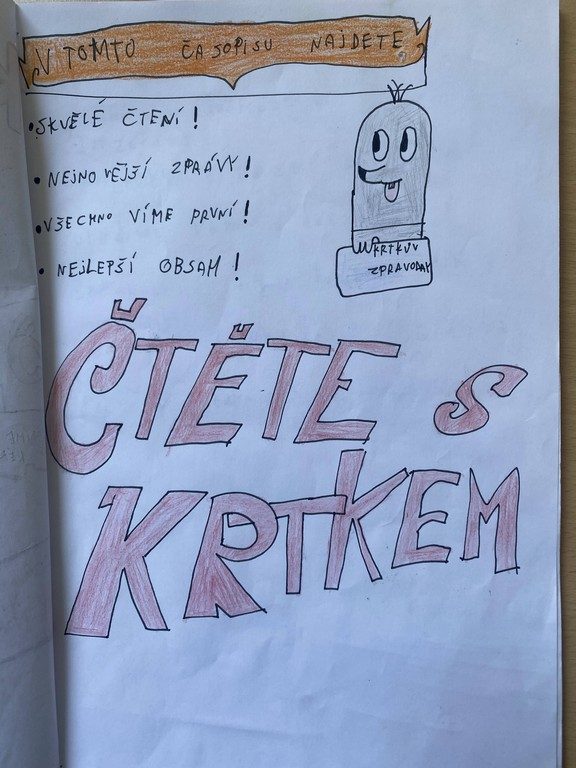 V TOMTO ČASOPISU NAJDETE
• SKVĚLÉ ČTENÍ!
• NEJNOVĚJŠÍ ZPRÁVY!
• VŠECHNO VÍME PRVNÍ!
• NEJLEPŠÍ OBSAH!
KRTKUV
ZPRAVODAJ
ČTĚTE S
KRTKEM